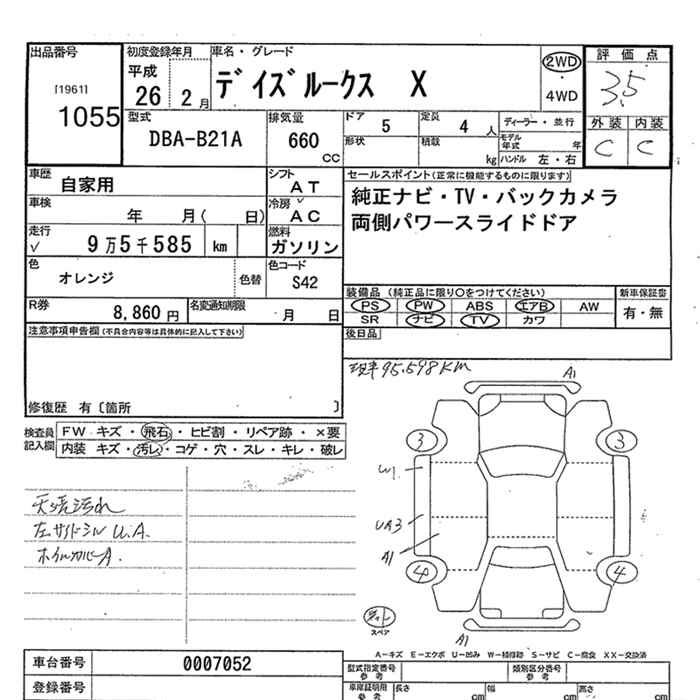 出品番号
[1961]
1055
初度登録年月
平成
26 2月
車名・グレード
デイズルークス X
2WD
・
4WD
評価点
3.5
外装 内装
C C
型式
DBA-B21A
排気量
660
CC
ドア
5
定員
4人
形状
積載
kg
ディーラー・並行
モデル年式 年
ハンドル 左・右
車歴
自家用
シフト
AT
車検
年 月( 日)
冷房
AC
走行
9万5千585 km
燃料
ガソリン
色
オレンジ
色替
色コード
S42
R券
8,860円
名変通知期限
月 日
セールスポイント(正常に機能するものに限ります)
純正ナビ・TV・バックカメラ
両側パワースライドドア
装備品 (純正品に限り〇をつけてください)
PS PW ABS エアB AW
SR ナビ TV カワ
新車保証書
有・無
後日品
注意事項申告欄(不具合内容等は具体的に記入して下さい)
修復歴 有〔箇所 〕
現車95.598KM
検査員
記入欄
FW キズ・飛石・ヒビ割・リペア跡・×要
内装 キズ・汚レ・コゲ・穴・スレ・キレ・破レ
天張汚れ
左サイドシル U.A.
ホイルカバーA.
A1
3
3
W1
UA3
A1
4
4
スペア
A1
A-キズ E-エクボ U-凹み W-補修跡 S-サビ C-腐食 XX-交換済
車台番号
0007052
登録番号
型式指定番号
参考
類別区分番号
参考
車庫証明用
参考
長さ cm
幅 cm
高さ cm